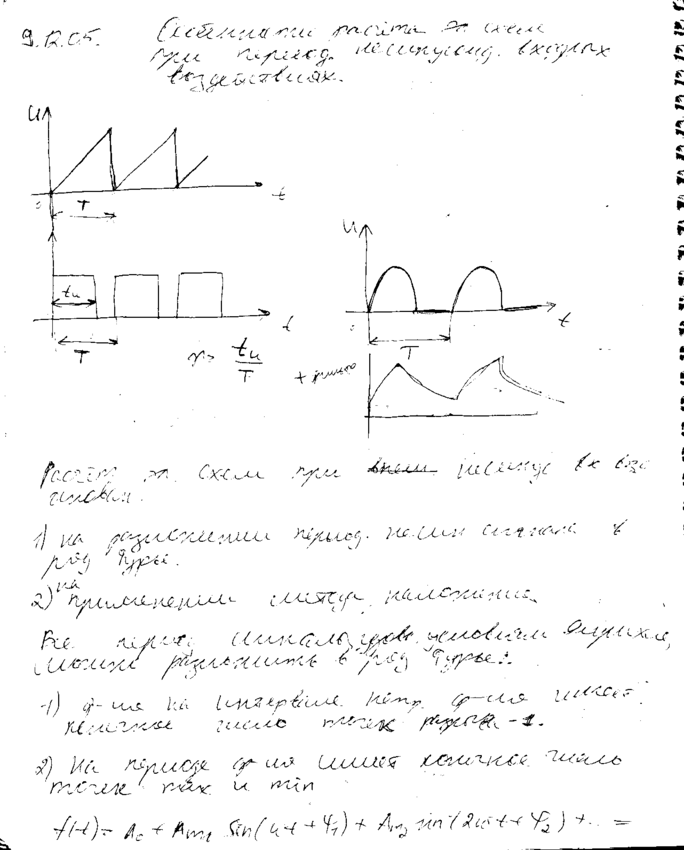 9.12.05. Особенности расчёта эл схем
при период. несинусоид. входных
воздействиях.
U
t
T
tu
t
T
γ = tu/T
U
t
T
Расчёт эл. схем при несинус вх воз
основан.
1) на разложении период. несин сигнала в
ряд Фурье.
2) на применении метода наложения
Все период сигналы удов. условиям Дирихле,
можно разложить в ряд Фурье:
1) ф-ия на интервале непр. ф-ия имеет
конечное число точек разрыва - 1.
2) На периоде ф-ия имеет конечное число
точек max и min
f(t) = A₀ + Am₁ sin(ωt + φ₁) + Am₂ sin(2ωt + φ₂) + ... =